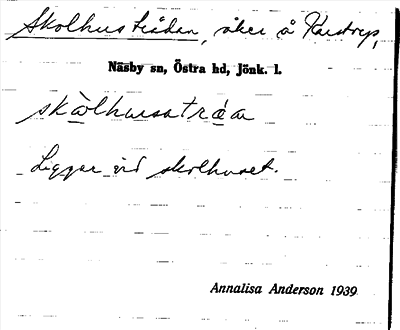 Skolhusträdan, åker å Karstorp,
Näsby sn, Östra hd, Jönk. l.
skòlhusstráa
Ligger vid skolhuset.
Annalisa Anderson 1939